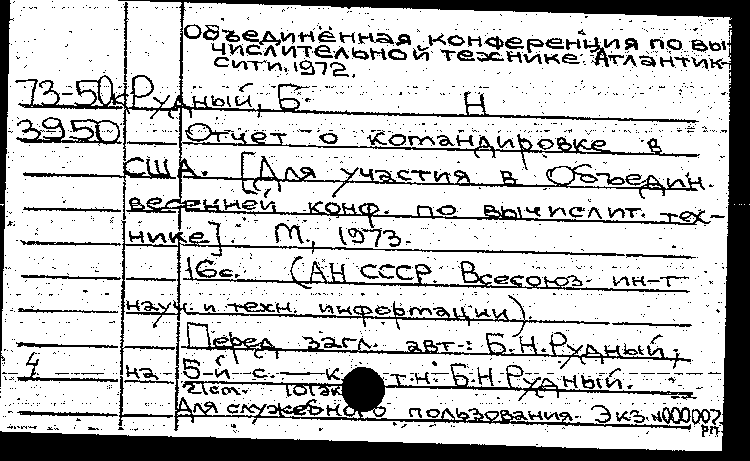 Объединённая конференция по вы
числительной технике. Атлантик-
сити. 1972.
73-50к Рудный, Б. Н
3950 Отчет о командировке в
США. [Для участия в Объедин.
весенней конф. по вычислит. тех-
нике]. М., 1973.
16с. (АН СССР. Всесоюз. ин-т
науч. и техн. информации).
Перед загл. авт.: Б.Н.Рудный;
на 5-й с. — к. т.н. Б.Н.Рудный.
21см.
Для служебного пользования. Экз. №000002
РП